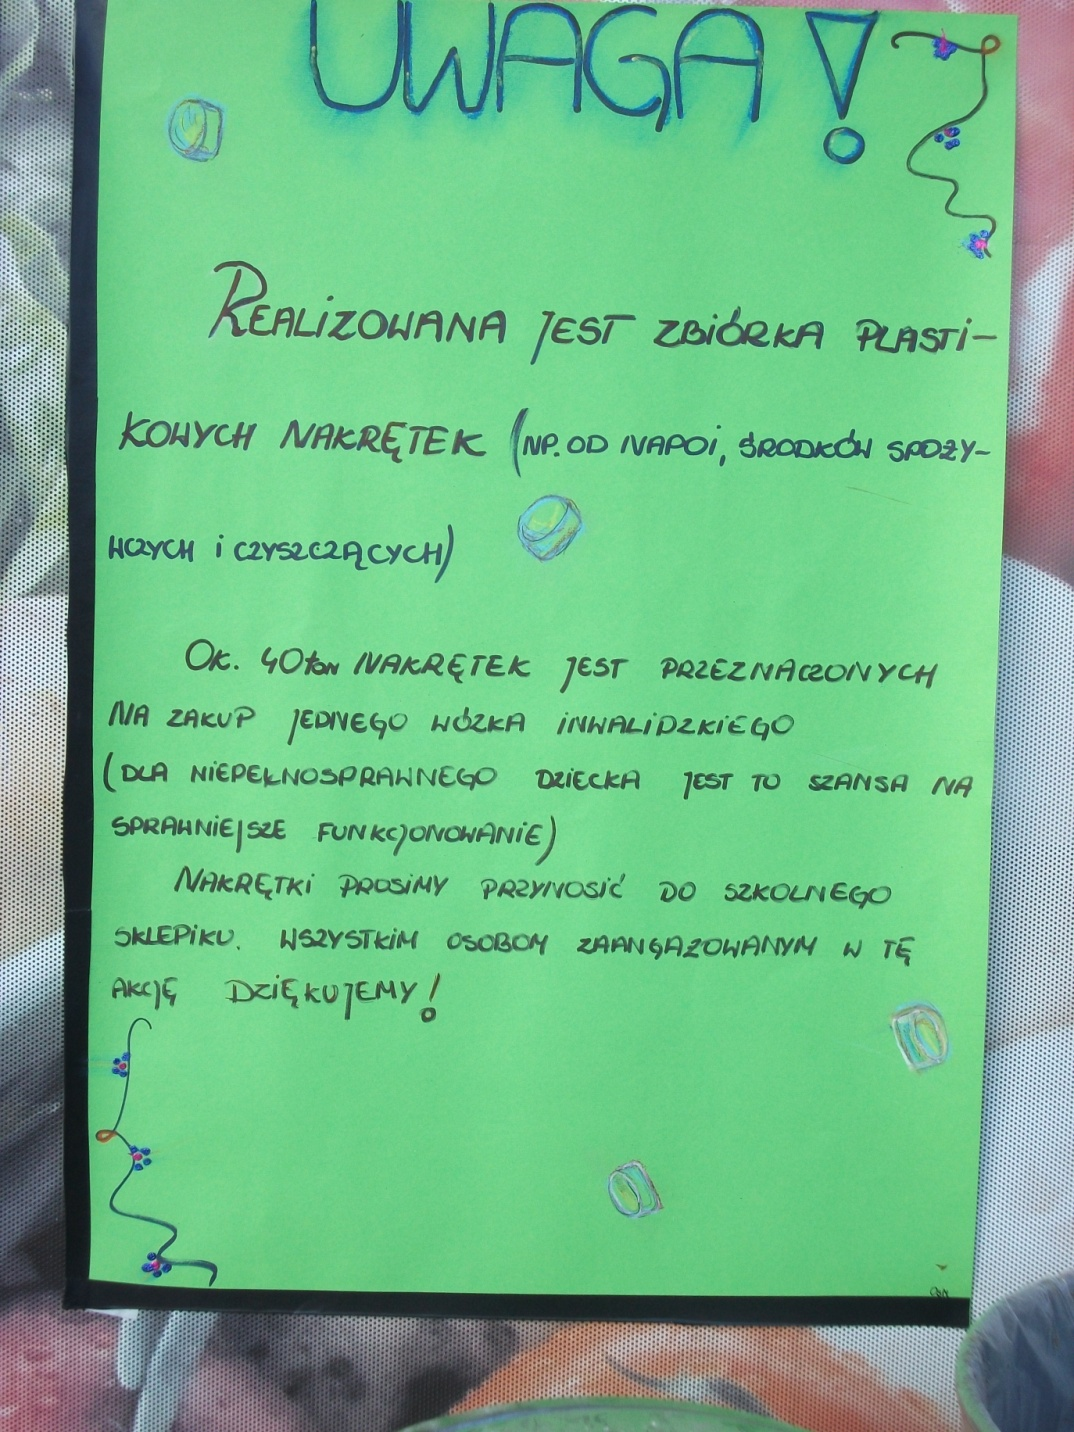 UWAGA!
REALIZOWANA JEST ZBIÓRKA PLASTI-
KOWYCH NAKRĘTEK (NP. OD NAPOI, ŚRODKÓW SPOŻY-
WCZYCH I CZYSZCZĄCYCH)
OK. 40 ton NAKRĘTEK JEST PRZEZNACZONYCH
NA ZAKUP JEDNEGO WÓZKA INWALIDZKIEGO
(DLA NIEPEŁNOSPRAWNEGO DZIECKA JEST TO SZANSA NA
SPRAWNIEJSZE FUNKCJONOWANIE)
NAKRĘTKI PROSIMY PRZYNOSIĆ DO SZKOLNEGO
SKLEPIKU. WSZYSTKIM OSOBOM ZAANGAŻOWANYM W TĘ
AKCJĘ DZIĘKUJEMY!